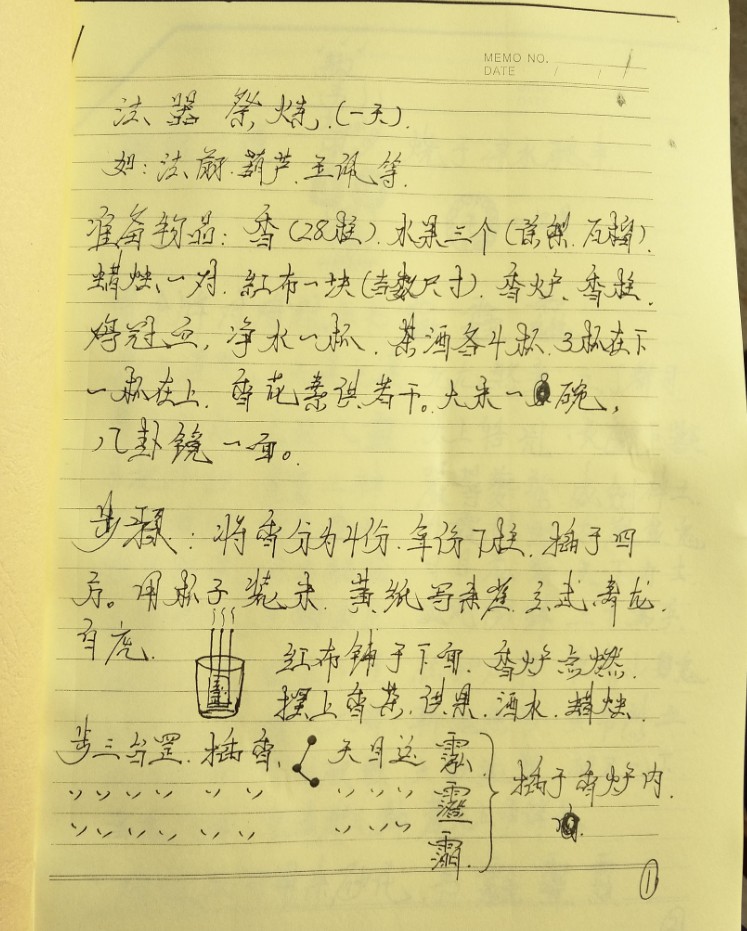 MEMO NO.
DATE / / 1
法器祭炼.(一天).
如:法扇.葫芦.玉佩等.
准备物品:香(28柱).水果三个(苹梨.石榴).
蜡烛一对.红布一块(吉数尺寸).香炉、香柱.
鸡冠血,净水一杯.茶酒各4杯.3杯在下
一杯在上.香花素供若干。大米一碗,
八卦镜一面。
步骤:将香分为4份.每份7柱.插于四
方。用杯子装米.黄纸写朱雀.玄武.青龙.
白虎.
红布铺于下面.香炉点燃.
摆上香茶.供果.酒水.蜡烛.
步三台罡.插香. 天目运
〃〃〃〃 〃〃 〃〃〃
〃〃〃〃 〃〃 〃〃〃
插于香炉内.
1